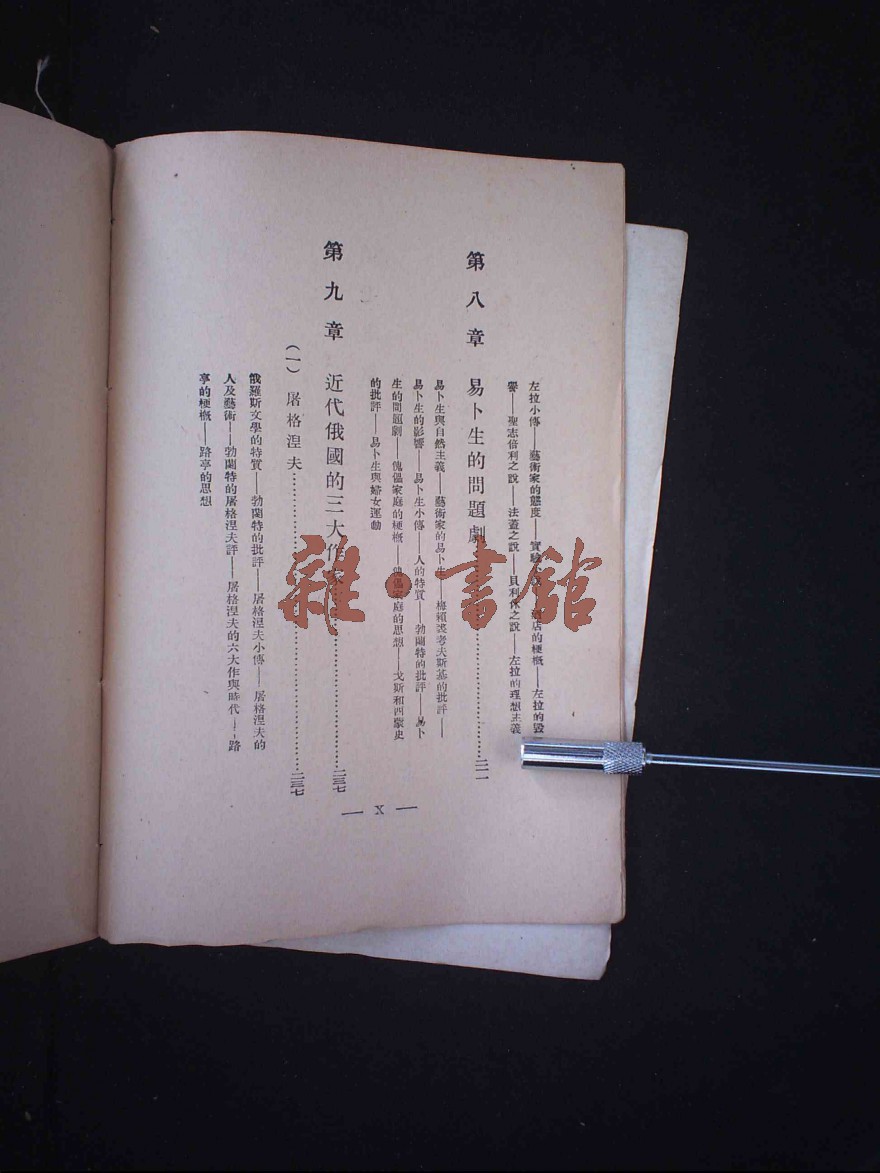 左拉小傳——藝術家的態度——實驗小說——酒店的梗概——左拉的毀
譽——聖志倍利之說——法蓋之說——貝利休之說——左拉的理想主義
第八章 易卜生的問題劇……二一一
易卜生與自然主義——藝術家的易卜生——梅賴裘考夫斯基的批評——
易卜生的影響——易卜生小傳——人的特質——勃蘭特的批評——易卜
生的問題劇——傀儡家庭的梗概——傀儡家庭的思想——戈斯和西蒙史
的批評——易卜生與婦女運動
第九章 近代俄國的三大作家……二三七
(一) 屠格涅夫……二三七
俄羅斯文學的特質——勃蘭特的批評——屠格涅夫小傳——屠格涅夫的
人及藝術——勃蘭特的屠格涅夫評——屠格涅夫的六大作與時代——路
亭的梗概——路亭的思想
— X —
雜·書館